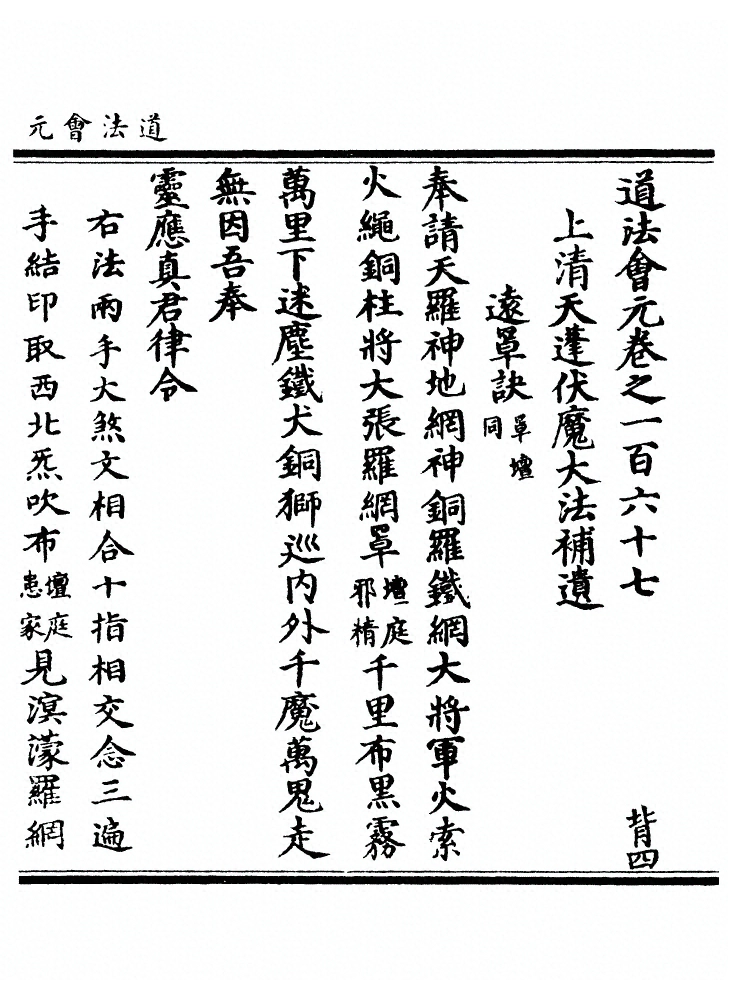 道法會元
道法會元卷之一百六十七 背四
上清天蓬伏魔大法補遺
遠罩訣 罩壇同
奉請天羅神地網神銅羅鐵網大將軍火索
火繩銅柱將大張羅網罩壇庭邪精千里布黑霧
萬里下迷塵鐵犬銅獅巡内外千魔萬鬼走
無因吾奉
靈應真君律令
右法兩手大煞文相合十指相交念三遍
手結印取西北炁吹布壇庭患家見溟濛羅網